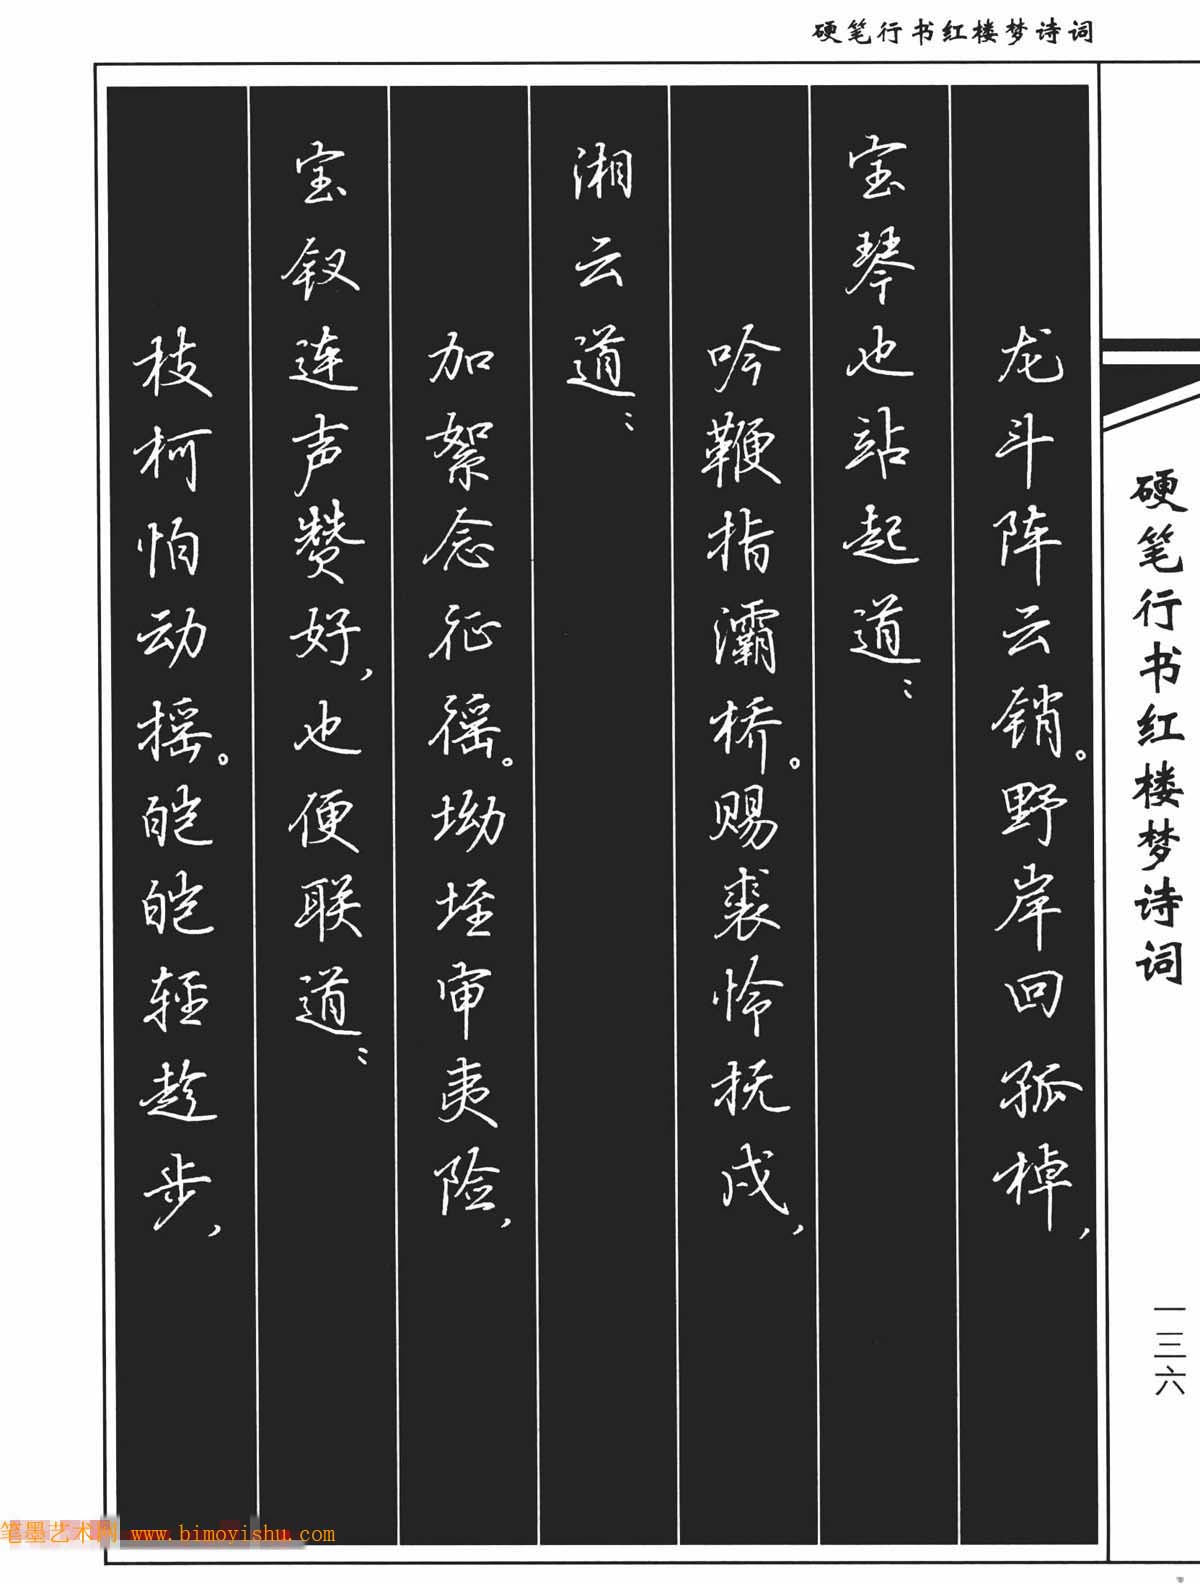 硬笔行书红楼梦诗词
龙斗阵云销。野岸回孤棹，
宝琴也站起道：
吟鞭指灞桥。赐裘怜抚戍，
湘云道：
加絮念征徭。坳垤审夷险，
宝钗连声赞好，也便联道：
枝柯怕动摇。皑皑轻趁步，
硬笔行书红楼梦诗词
一三六
笔墨艺术网 www.bimoyishu.com